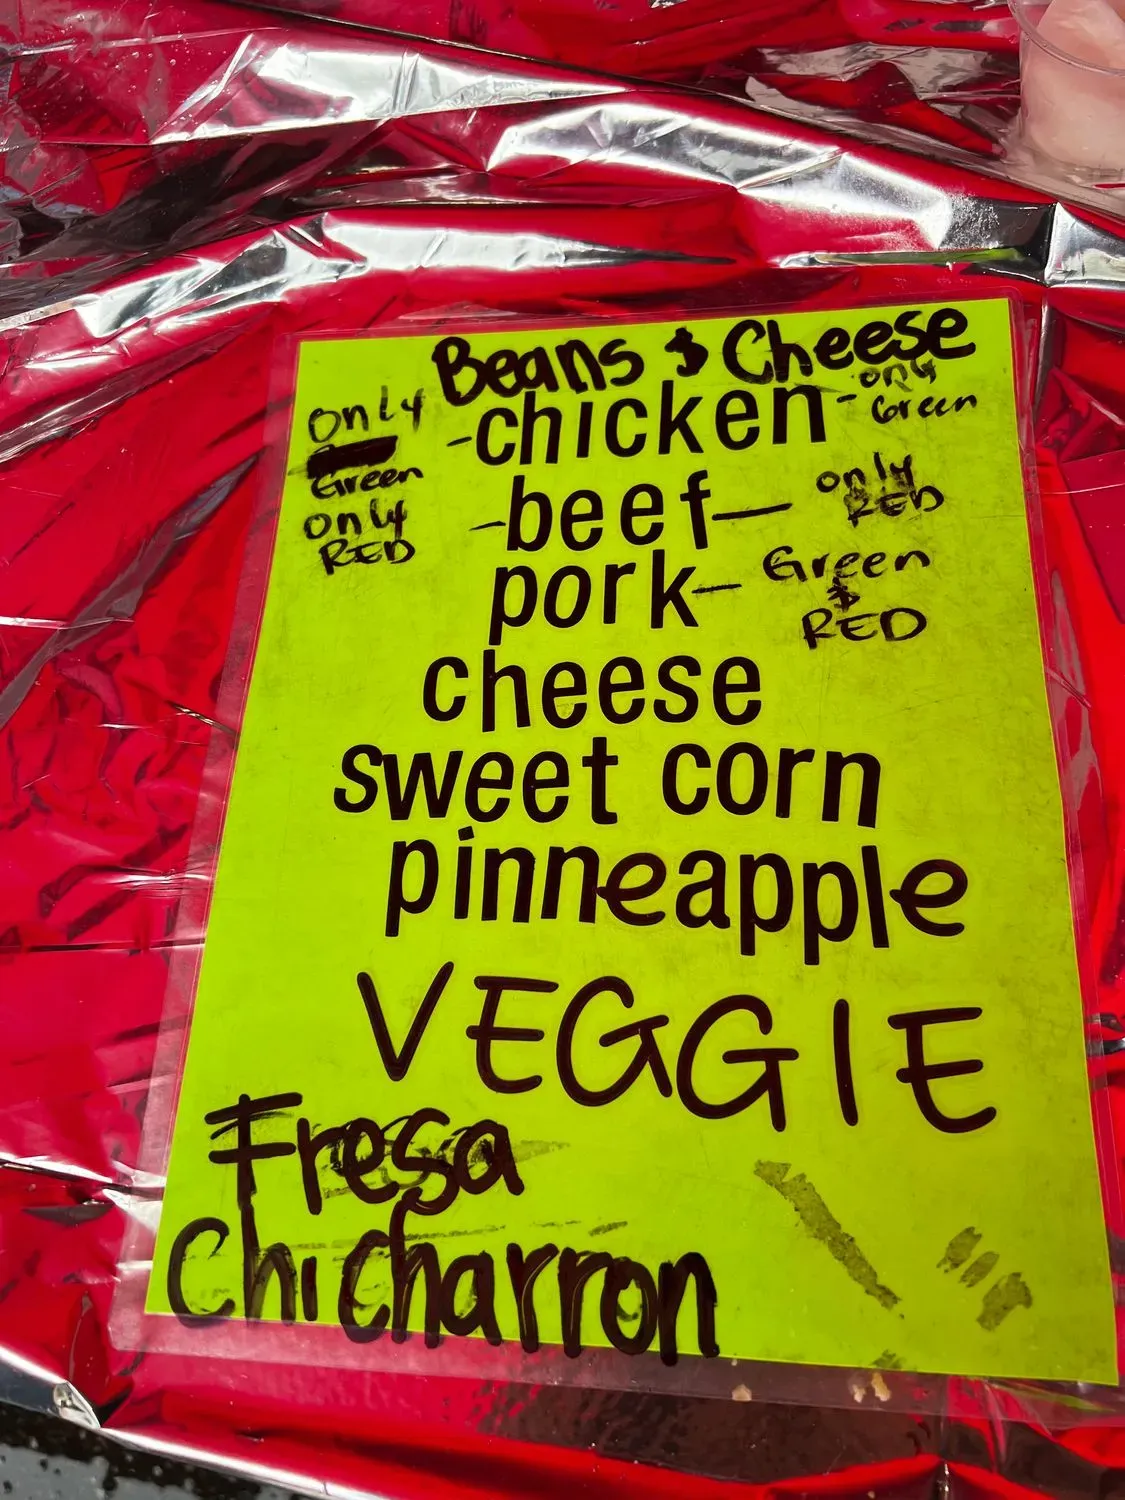 Beans & Cheese
only Green - chicken - only Green
only RED - beef - only RED
pork - Green & RED
cheese
sweet corn
pinneapple
VEGGIE
Fresa
Chicharron